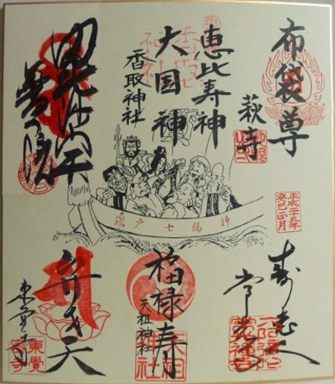 布袋尊
萩寺
恵比寿神
大国神
香取神社
毘沙門天
普門院
平成二十五年
癸巳正月
寿老人
常光寺
福禄寿
天祖神社
弁才天
東覚寺